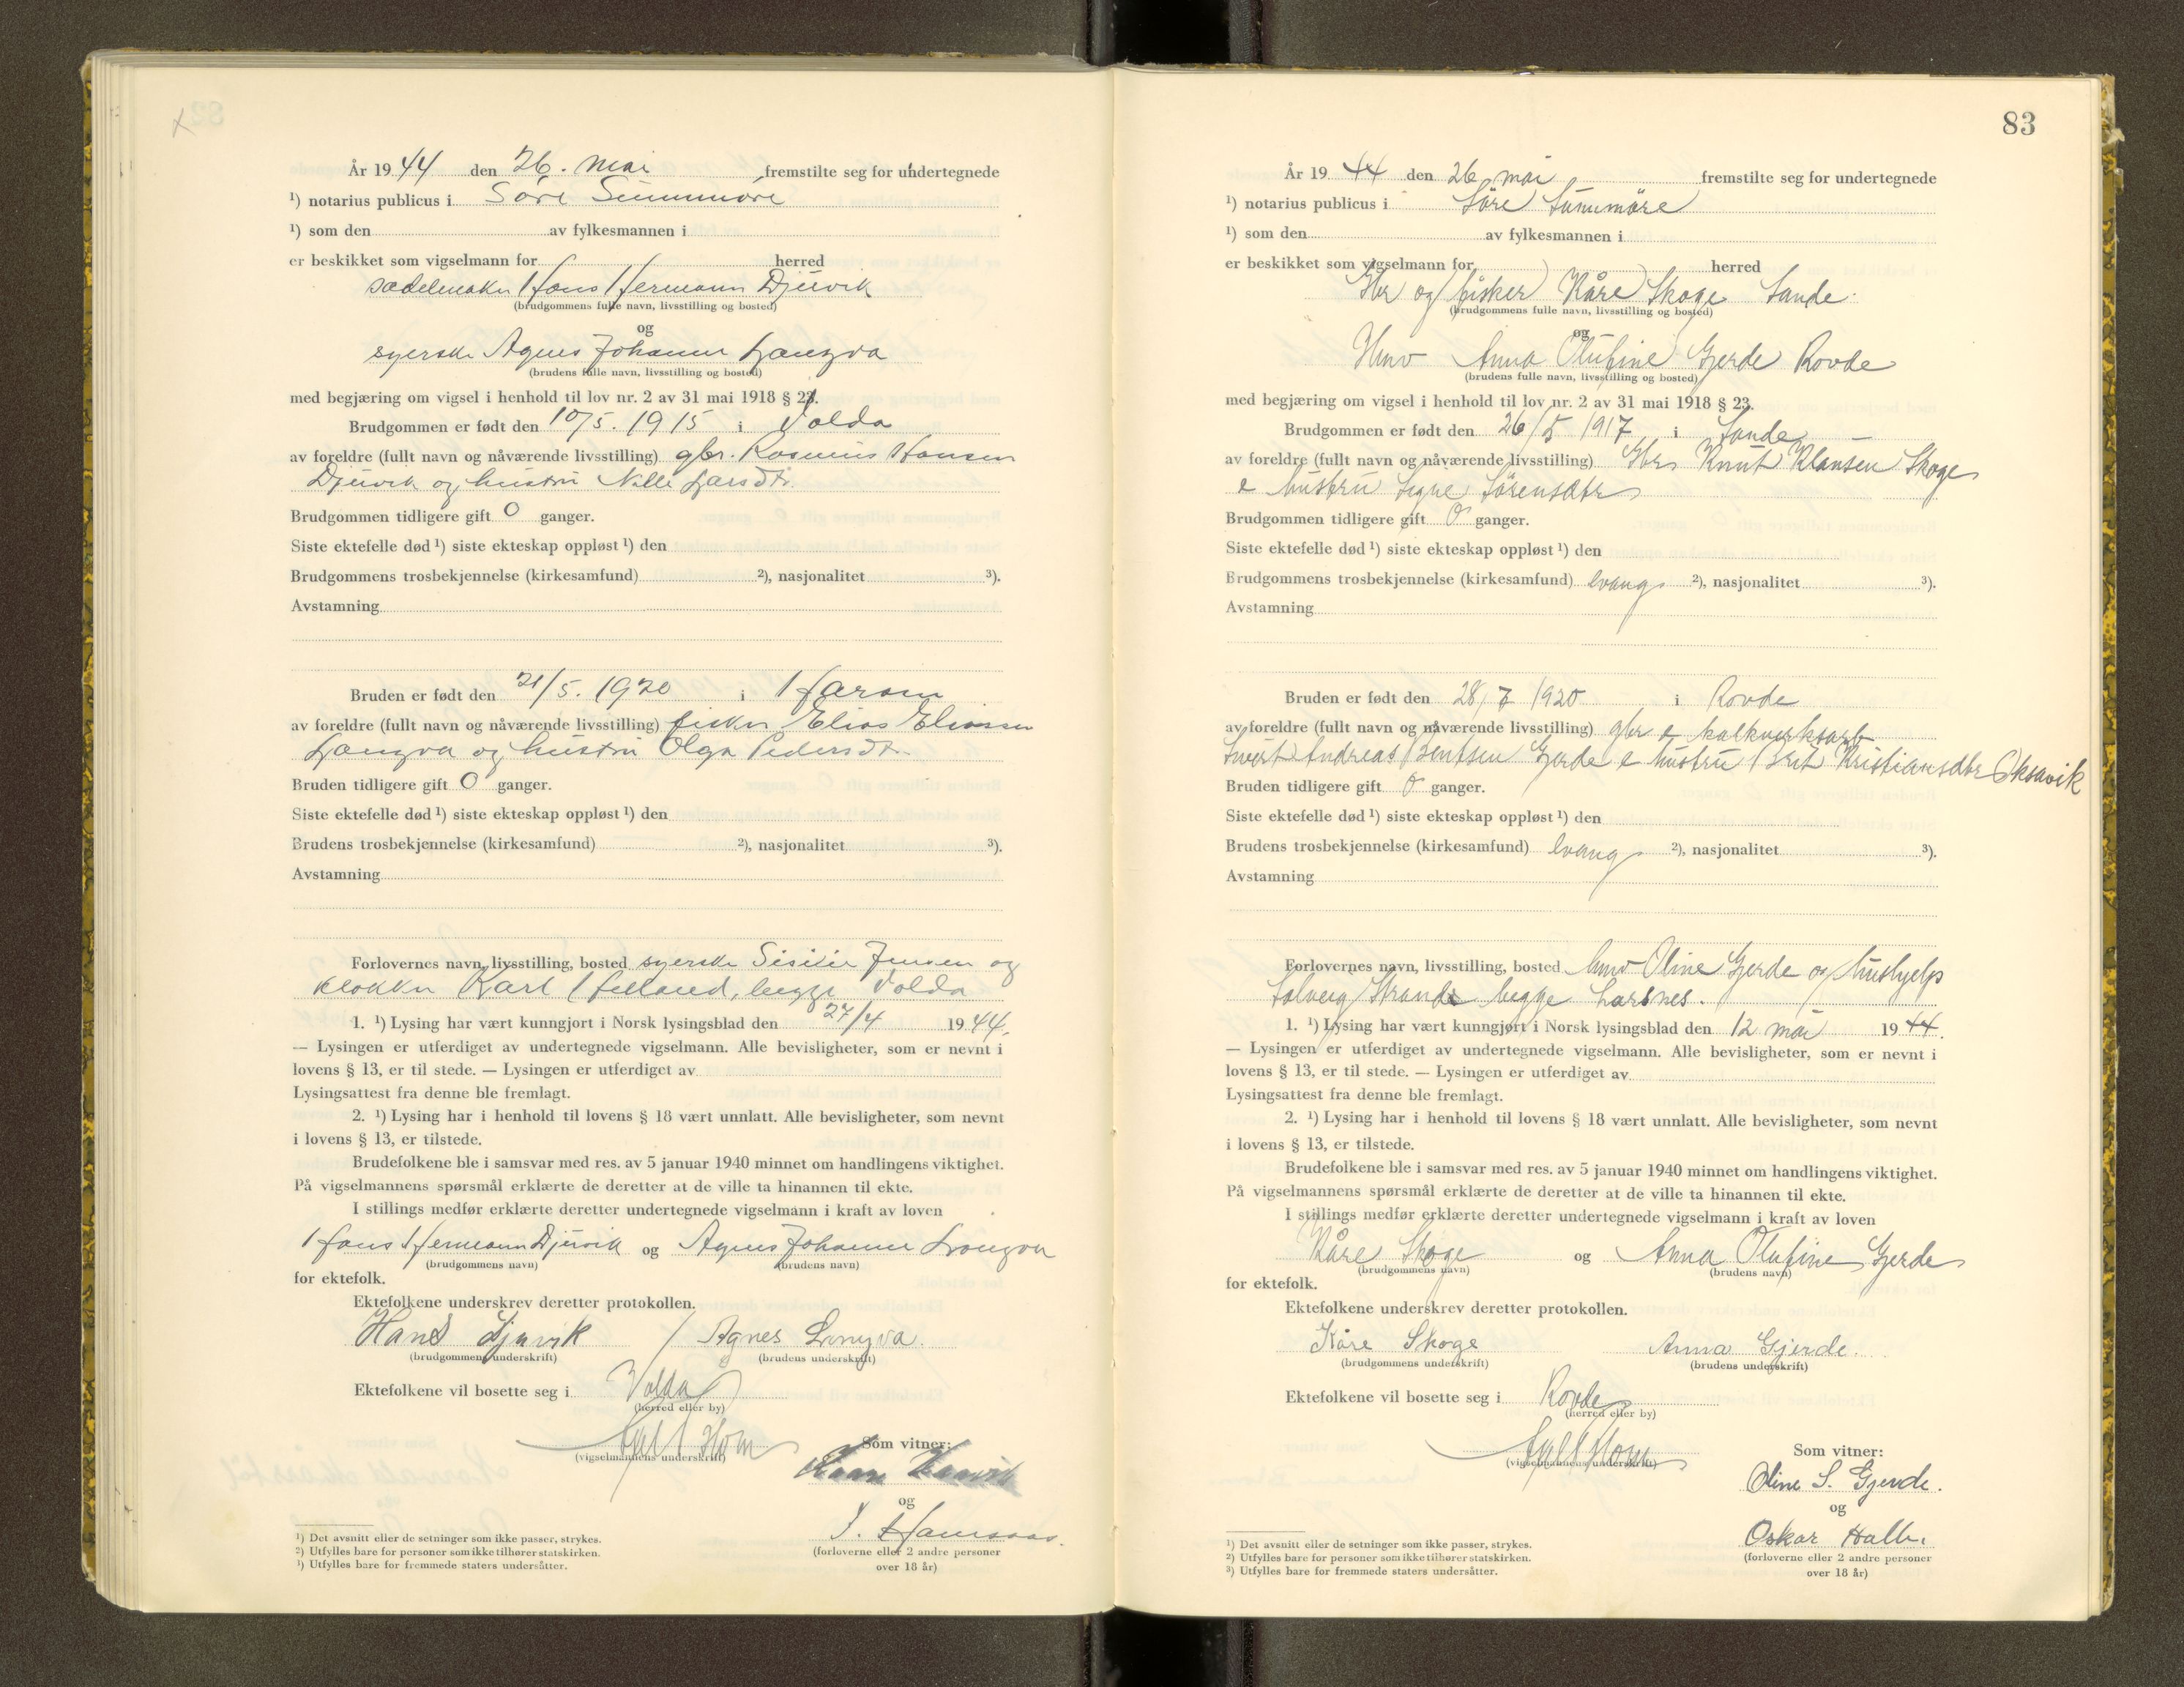 År 1944 den 26. mai fremstilte seg for undertegnede
¹) notarius publicus i Søre Sunnmøre
¹) som den av fylkesmannen i
er beskikket som vigselmann for herred
Hans Hermann Djuvik
(brudgommens fulle navn, livsstilling og bosted)
og
syerske Agnes Johanne Longva
(brudens fulle navn, livsstilling og bosted)
med begjæring om vigsel i henhold til lov nr. 2 av 31 mai 1918 § 23.
Brudgommen er født den 10/5. 1915 i Volda
av foreldre (fullt navn og nåværende livsstilling) gbr. Rasmus Hansen
Djuvik og hustru Nille Larsdtr.
Brudgommen tidligere gift 0 ganger.
Siste ektefelle død ¹) siste ekteskap oppløst ¹) den
Brudgommens trosbekjennelse (kirkesamfund) ²), nasjonalitet ³).
Avstamning
Bruden er født den 21/5. 1920 i Haram
av foreldre (fullt navn og nåværende livsstilling) fisker Elias Eliassen
Longva og hustru Olga Pedersdtr.
Bruden tidligere gift 0 ganger.
Siste ektefelle død ¹) siste ekteskap oppløst ¹) den
Brudens trosbekjennelse (kirkesamfund) ²), nasjonalitet ³).
Avstamning
Forlovernes navn, livsstilling, bosted syerske Jensen og
klokker Karl begge Volda
1. ¹) Lysing har vært kunngjort i Norsk lysingsblad den 27/4 1944.
— Lysingen er utferdiget av undertegnede vigselmann. Alle bevisligheter, som er nevnt i
lovens § 13, er til stede. — Lysingen er utferdiget av
Lysingsattest fra denne ble fremlagt.
2. ¹) Lysing har i henhold til lovens § 18 vært unnlatt. Alle bevisligheter, som nevnt
i lovens § 13, er tilstede.
Brudefolkene ble i samsvar med res. av 5 januar 1940 minnet om handlingens viktighet.
På vigselmannens spørsmål erklærte de deretter at de ville ta hinannen til ekte.
I stillings medfør erklærte deretter undertegnede vigselmann i kraft av loven
Hans Hermann Djuvik og Agnes Johanne Longva
(brudgommens navn) (brudens navn)
for ektefolk.
Ektefolkene underskrev deretter protokollen.
Hans Djuvik / Agnes Longva.
(brudgommens underskrift) (brudens underskrift)
Ektefolkene vil bosette seg i Volda
(herred eller by)
Som vitner:
(vigselmannens underskrift)
og
(forloverne eller 2 andre personer
over 18 år)
¹) Det avsnitt eller de setninger som ikke passer, strykes.
²) Utfylles bare for personer som ikke tilhører statskirken.
³) Utfylles bare for fremmede staters undersåtter.
83
År 1944 den 26 mai fremstilte seg for undertegnede
¹) notarius publicus i Søre Sunnmøre
¹) som den av fylkesmannen i
er beskikket som vigselmann for herred
Gbr og fisker Kåre Skoge Sande.
(brudgommens fulle navn, livsstilling og bosted)
og
Hmv Anna Olufine Gjerde Rovde
(brudens fulle navn, livsstilling og bosted)
med begjæring om vigsel i henhold til lov nr. 2 av 31 mai 1918 § 23.
Brudgommen er født den 26/5 1917 i Sande
av foreldre (fullt navn og nåværende livsstilling) Gbr Knut Klausen Skoge
e hustru Signe Sørensdtr
Brudgommen tidligere gift 0 ganger.
Siste ektefelle død ¹) siste ekteskap oppløst ¹) den
Brudgommens trosbekjennelse (kirkesamfund) evang ²), nasjonalitet ³).
Avstamning
Bruden er født den 28/7 1920 i Rovde
av foreldre (fullt navn og nåværende livsstilling) gbr e kalkverksarb
Sivert Andreas Bentsen Gjerde e hustru Brit Kristiansdtr Oksavik
Bruden tidligere gift 0 ganger.
Siste ektefelle død ¹) siste ekteskap oppløst ¹) den
Brudens trosbekjennelse (kirkesamfund) evang ²), nasjonalitet ³).
Avstamning
Forlovernes navn, livsstilling, bosted hmv Oline Gjerde og hushjelp
Solveig Strande begge Larsnes.
1. ¹) Lysing har vært kunngjørt i Norsk lysingsblad den 12 mai 1944.
— Lysingen er utferdiget av undertegnede vigselmann. Alle bevisligheter, som er nevnt i
lovens § 13, er til stede. — Lysingen er utferdiget av
Lysingsattest fra denne ble fremlagt.
2. ¹) Lysing har i henhold til lovens § 18 vært unnlatt. Alle bevisligheter, som nevnt
i lovens § 13, er tilstede.
Brudefolkene ble i samsvar med res. av 5 januar 1940 minnet om handlingens viktighet.
På vigselmannens spørsmål erklærte de deretter at de ville ta hinannen til ekte.
I stillings medfør erklærte deretter undertegnede vigselmann i kraft av loven
Kåre Skoge og Anna Olufine Gjerde
(brudgommens navn) (brudens navn)
for ektefolk.
Ektefolkene underskrev deretter protokollen.
Kåre Skoge Anna Gjerde.
(brudgommens underskrift) (brudens underskrift)
Ektefolkene vil bosette seg i Rovde
(herred eller by)
Som vitner:
(vigselmannens underskrift)
Oline S. Gjerde.
og
Oskar
(forloverne eller 2 andre personer
over 18 år)
¹) Det avsnitt eller de setninger som ikke passer, strykes.
²) Utfylles bare for personer som ikke tilhører statskirken.
³) Utfylles bare for fremmede staters undersåtter.